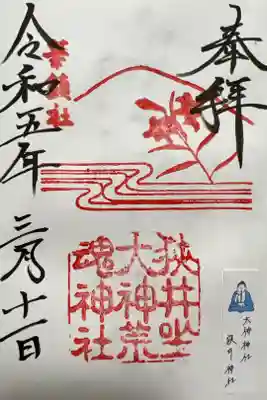 奉拝
華鎮社
狭井坐
大神荒
魂神社
令和五年
三月十一日
大神神社
狭井神社